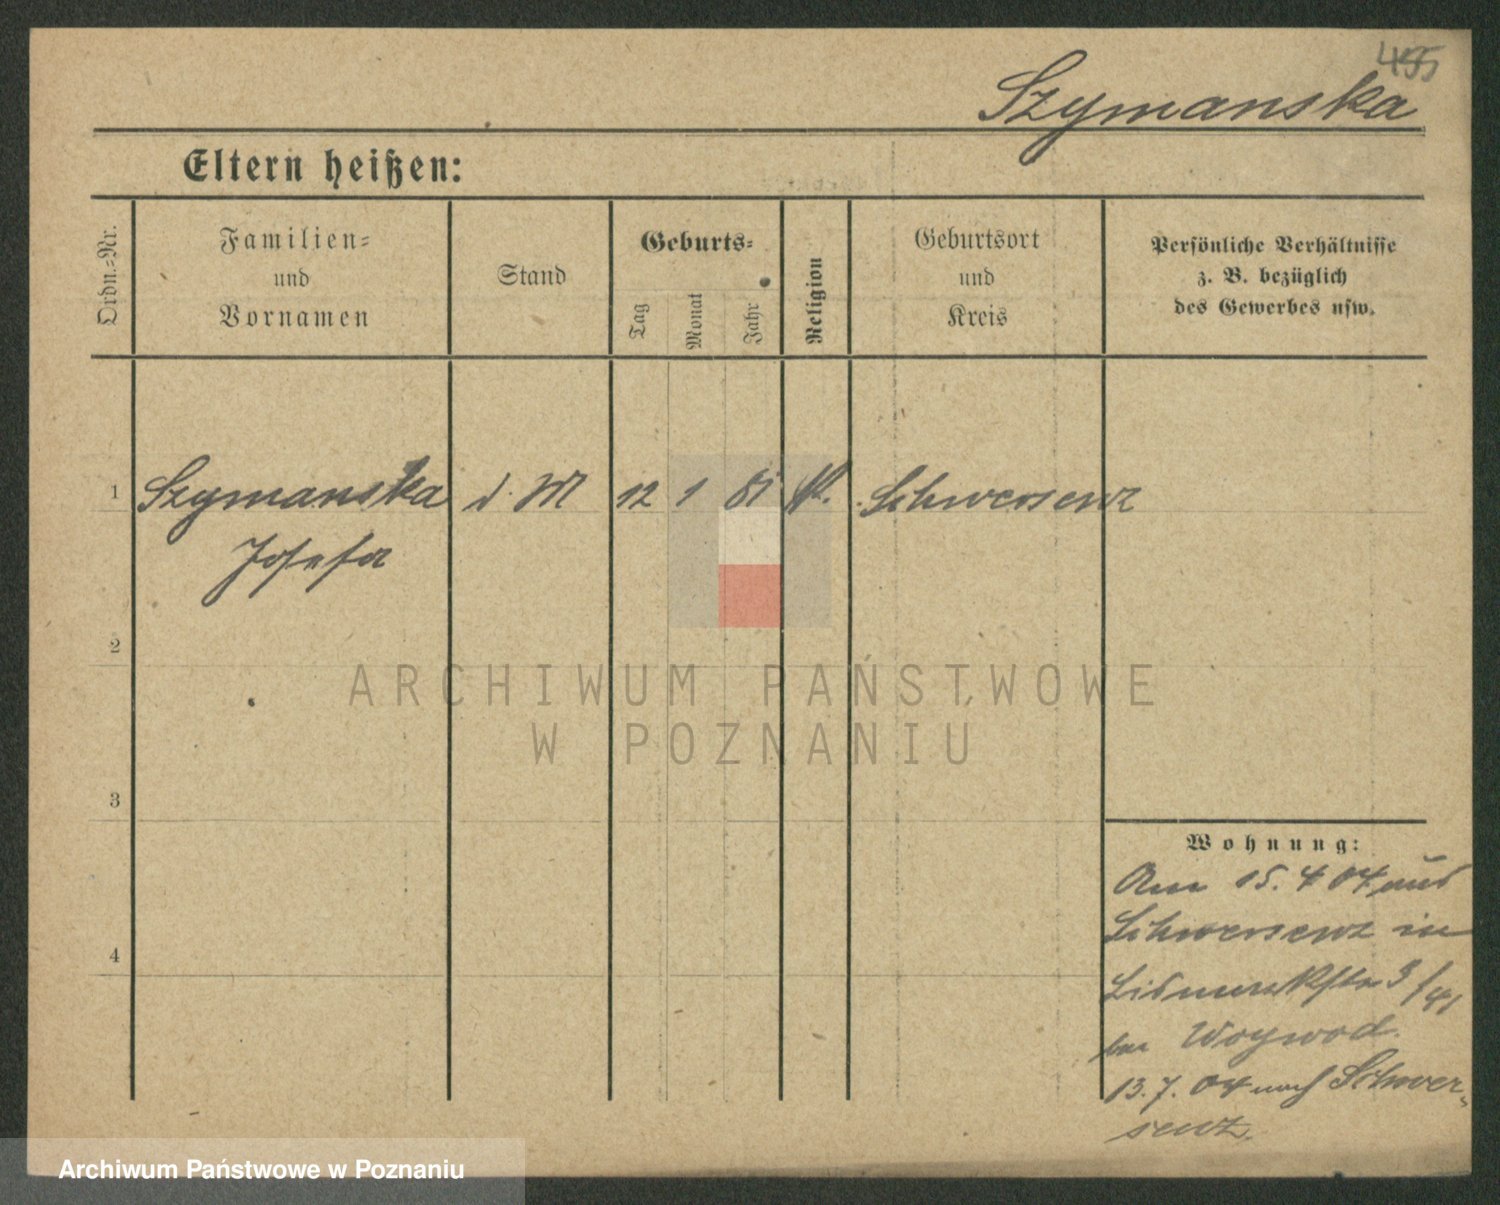 455
Szymanska
Eltern heißen:
Ordn.-Nr.
Familien-
und
Vornamen
Stand
Geburts-
Tag
Monat
Jahr
Religion
Geburtsort
und
Kreis
Persönliche Verhältnisse
z. B. bezüglich
des Gewerbes usw.
1 Szymanska d. M 12 1 81 k. Schwersenz
Josefa
2
3
4
ARCHIWUM PAŃSTWOWE
W POZNANIU
Wohnung:
Am 15.4 04 aus
Schwersenz in
Bismarckstr 3/41
bei Woywod.
13.7.04 nach Schwer-
senz.
Archiwum Państwowe w Poznaniu